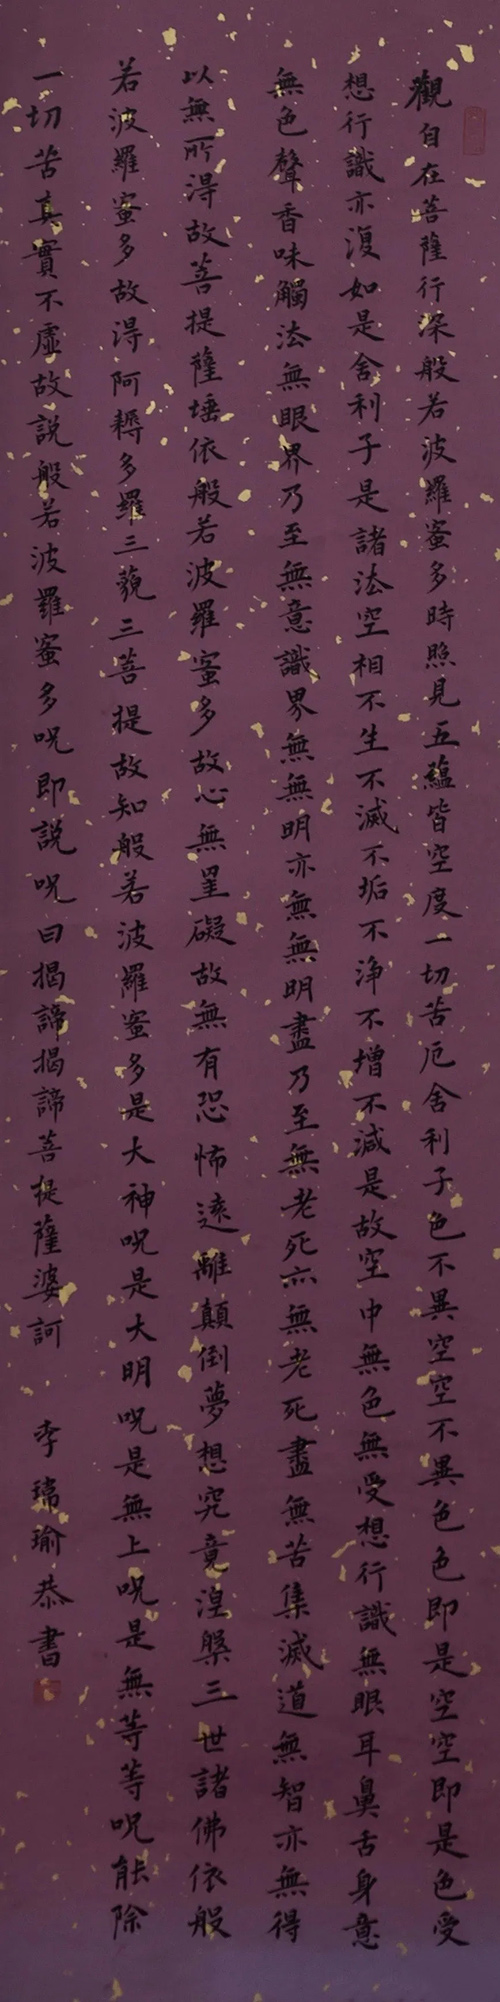 觀自在菩薩行深般若波羅蜜多時照見五蘊皆空度一切苦厄舍利子色不異空空不異色色即是空空即是色受
想行識亦復如是舍利子是諸法空相不生不滅不垢不淨不增不減是故空中無色無受想行識無眼耳鼻舌身意
無色聲香味觸法無眼界乃至無意識界無無明亦無無明盡乃至無老死亦無老死盡無苦集滅道無智亦無得
以無所得故菩提薩埵依般若波羅蜜多故心無罣礙故無有恐怖遠離顛倒夢想究竟涅槃三世諸佛依般
若波羅蜜多故得阿耨多羅三藐三菩提故知般若波羅蜜多是大神呪是大明呪是無上呪是無等等呪能除
一切苦真實不虛故說般若波羅蜜多呪即說呪曰揭諦揭諦菩提薩婆訶 李瑞瑜恭書